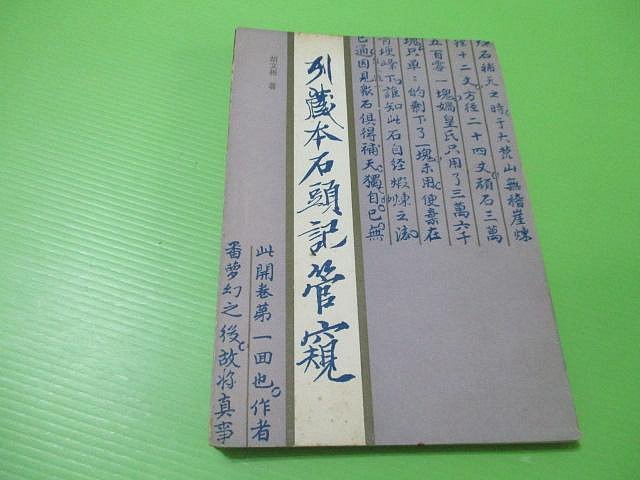 石補天之時于大荒山無稽崖煉
十二丈方徑二十四丈頑石三萬
五百零一塊媧皇氏只用了三萬六千
塊只單:的剩下了一塊未用便棄在
埂峰下誰知此石自經煆煉之後
已通因見衆石俱得補天獨自己無
列藏本石頭記管窺
胡文彬 著
此開卷第一回也。作者
番夢幻之後故將真事